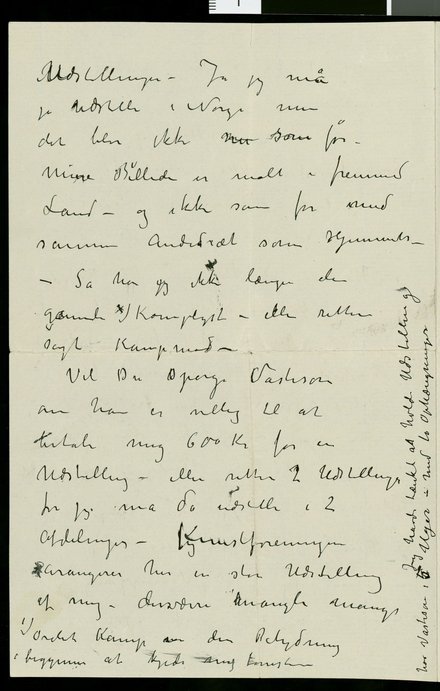 Udstillinger – Ja jeg må
jo udstille i Norge men
det blir ikke som før –
Mine Billeder er malt i fremmed
Land – og ikke som før med
samme Andedræt som Hjemmets –
– Så har jeg ikke længer den
gamle 1) Kamplyst – eller rettere
sagt Kampmod –
Vil De spørge Vadskier
om han er villig til at
betale mig 600 Kr for en
Udstilling – eller rettere 2 Udstillinger
for jeg må da udstille i 2
Afdelinger – Kunstforeningen
arangerer her en stor Udstilling
af mig – desværre mangle mange
1) Ordet Kamp den Betydning
i begynner at
Jeg havde tænkt at holde Udstilling
hos i Uger – med to Ophængninger